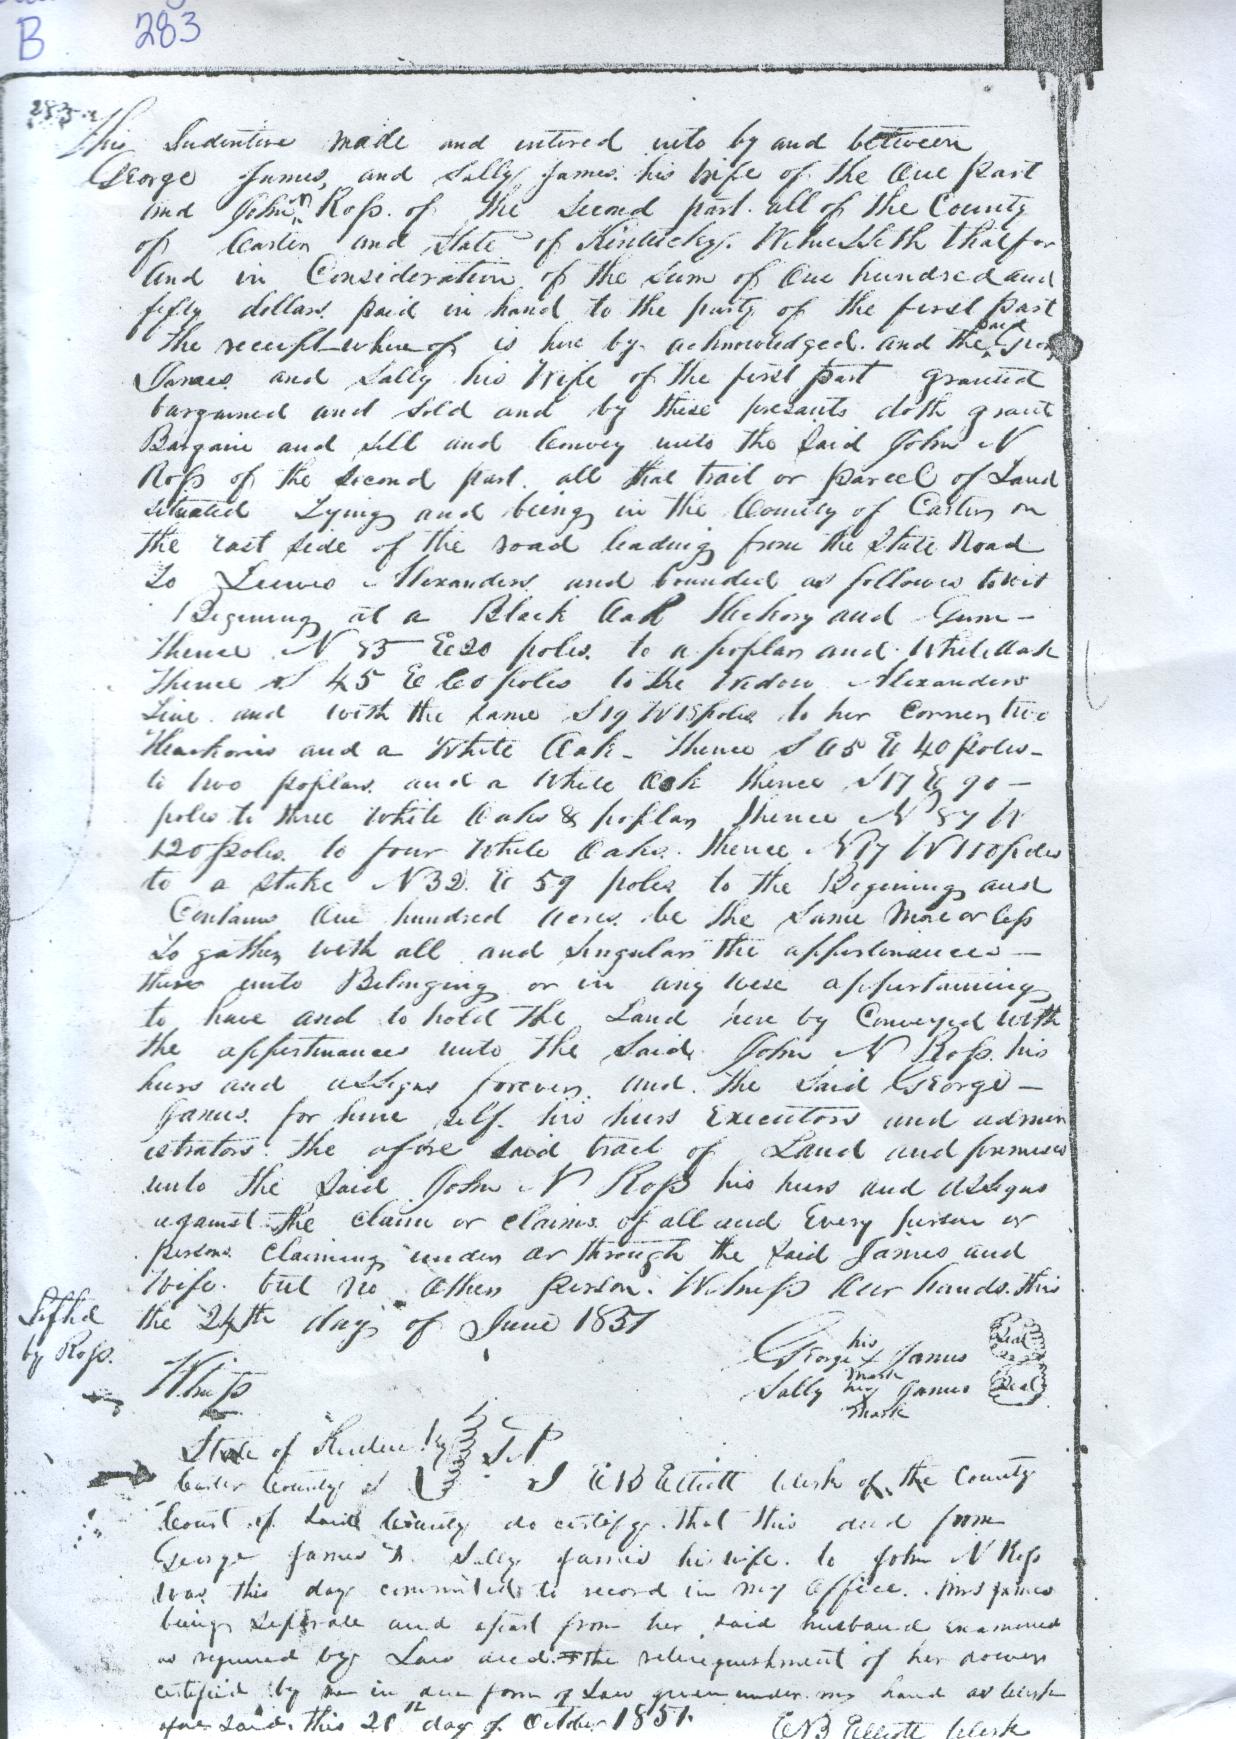 B 283
283
This Indenture made and intered into by and between
George James, and Sally James his Wife of the One part
and John N Ross. of the Second part. all of the County
of Carter and State of Kentucky. Witnesseth that for
and in Consideration of the sum of One hundred and
fifty dollars. paid in hand to the party of the first part
the receipt whereof is here by acknowledged. and the said
James and Sally his Wife of the first part granted
bargained and Sold and by these presents doth grant
Bargain and sell and Convey unto the Said John N
Ross of the Second part. all that trait or parcel of Land
situated Lying and being in the County of Carter on
the east side of the road leading from the State Road
to Alexanders and bounded as follows towit
Begining at a Black Oak Hickory and Gum
thence N E 20 poles. to a poplar and White Oak
thence S 45 E poles to the Widow Alexanders
Line and with the same poles to her Corner two
and a White Oak thence E 40 poles
to two poplars. and a White Oak thence S 17 E 90
poles to three White Oaks & poplar thence N 87 W
120 poles. to four White Oaks. thence W 110 poles
to a stake N 32 E 59 poles to the Begining and
Contains One hundred acres. be the same More or less
to gather with all and Singular the appertinances
there unto Belonging or in any wise appertaining
to have and to hold the Land here by Conveyed with
the appertinances unto the Said John N Ross. his
heirs and assigns forever. and the Said George
James. for him self. his heirs Executors and admin
istrators. the afore said tract of Land and premises
unto the Said John N Ross his heirs and assigns
against the claim or claims of all and Every person or
persons claiming under or through the said James and
Wife. but no other person. Witness Our hands. this
the 24th day of June 1851
by Ross.
his
George X James Seal
mark
Sally her James Seal
mark
Witness
State of Kentucky
Carter County
I Elliott Clerk of the County
Court of Said County do certify. that this deed from
George James & Sally James his wife. to John N Ross
was this day committed to record in my Office. Mrs James
being seperate and apart from her said husband examined
as required by Law and the relinquishment of her dower
certified by me in due form of Law given under my hand as Clerk
afore said. this day of October 1851.
Elliott Clerk